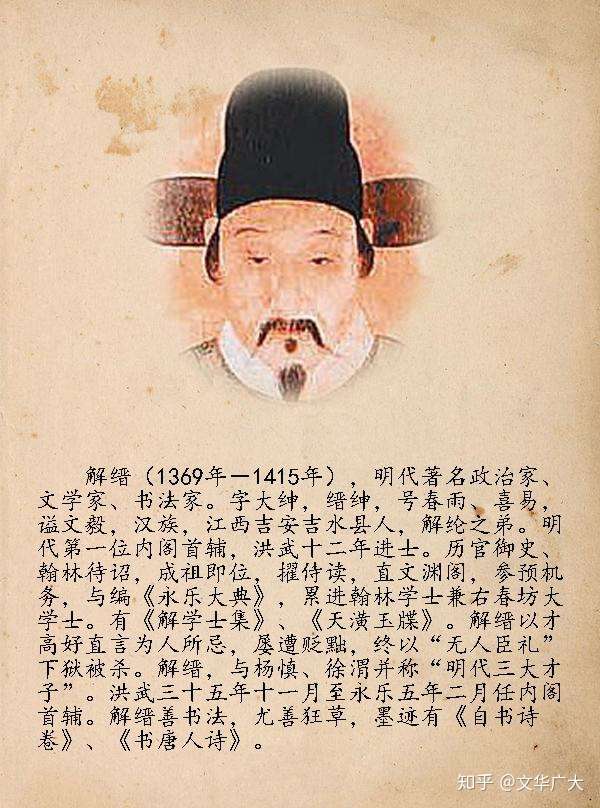 解缙（1369年—1415年），明代著名政治家、
文学家、书法家。字大绅，缙绅，号春雨、喜易，
谥文毅，汉族，江西吉安吉水县人，解纶之弟。明
代第一位内阁首辅，洪武十二年进士。历官御史、
翰林待诏，成祖即位，擢侍读，直文渊阁，参预机
务，与编《永乐大典》，累进翰林学士兼右春坊大
学士。有《解学士集》、《天潢玉牒》。解缙以才
高好直言为人所忌，屡遭贬黜，终以“无人臣礼”
下狱被杀。解缙，与杨慎、徐渭并称“明代三大才
子”。洪武三十五年十一月至永乐五年二月任内阁
首辅。解缙善书法，尤善狂草，墨迹有《自书诗
卷》、《书唐人诗》。
知乎 @文华广大